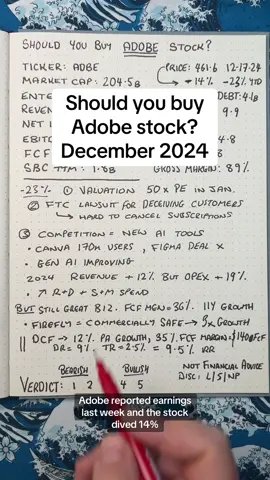 SHOULD YOU BUY ADOBE STOCK?
TICKER: ADBE
PRICE: 461.6 12.17.24
MARKET CAP: 204.5B
-14% -23% YTD
ENTE
DEBT: 4.1B
REVEN
9.9
NET I
EBITD
4.8
FCF
SBC TTM : 1.8B
GROSS MARGIN: 89%
Should you buy
Adobe stock?
December 2024
-23% ① VALUATION 50X PE IN JAN.
② FTC LAWSUIT FOR DECEIVING CUSTOMERS
↳ HARD TO CANCEL SUBSCRIPTIONS
③ COMPETITION = NEW AI TOOLS
• CANVA 170M USERS, FIGMA DEAL X
• GEN AI IMPROVING
2024 REVENUE +12% BUT OPEX +19%
• ↑ R+D + S+M SPEND
BUT STILL GREAT BIZ. FCF MGN = 36%. 11Y GROWTH
• FIREFLY = COMMERCIALLY SAFE → GROWTH
DCF → 12% PA GROWTH, 35% FCF MARGIN =
DR = 9% TR = 2.5% = 9.5% IRR
BEARISH BULLISH
NOT FINANCIAL ADVICE
DISC: L/S/NP
VERDICT: 1 2 4 5
Adobe reported earnings
last week and the stock
dived 14%